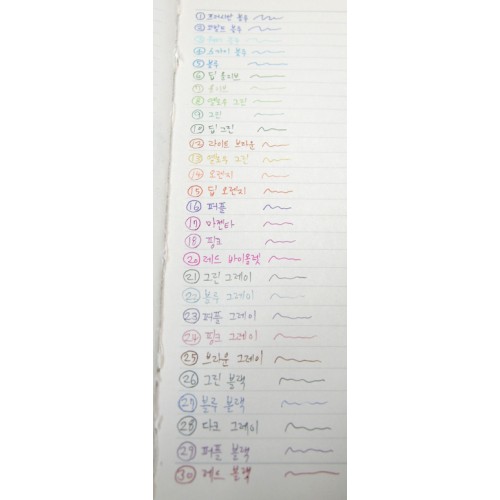 ① 프러시안 블루
② 코발트 블루
③ 블루
④ 스카이 블루
⑤ 블루
⑥ 딥 올리브
⑦ 올리브
⑧ 옐로우 그린
⑨ 그린
⑩ 딥 그린
⑫ 라이트 브라운
⑬ 옐로우 그린
⑭ 오렌지
⑮ 딥 오렌지
⑯ 퍼플
⑰ 마젠타
⑱ 핑크
⑳ 레드 바이올렛
㉑ 그린 그레이
㉒ 블루 그레이
㉓ 퍼플 그레이
㉔ 핑크 그레이
㉕ 브라운 그레이
㉖ 그린 블랙
㉗ 블루 블랙
㉘ 다크 그레이
㉙ 퍼플 블랙
㉚ 레드 블랙